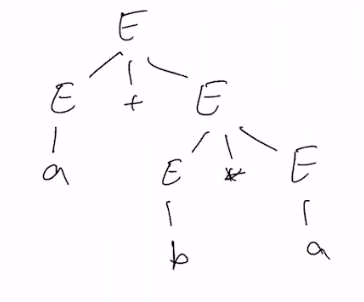 E
E + E
a E * E
b a